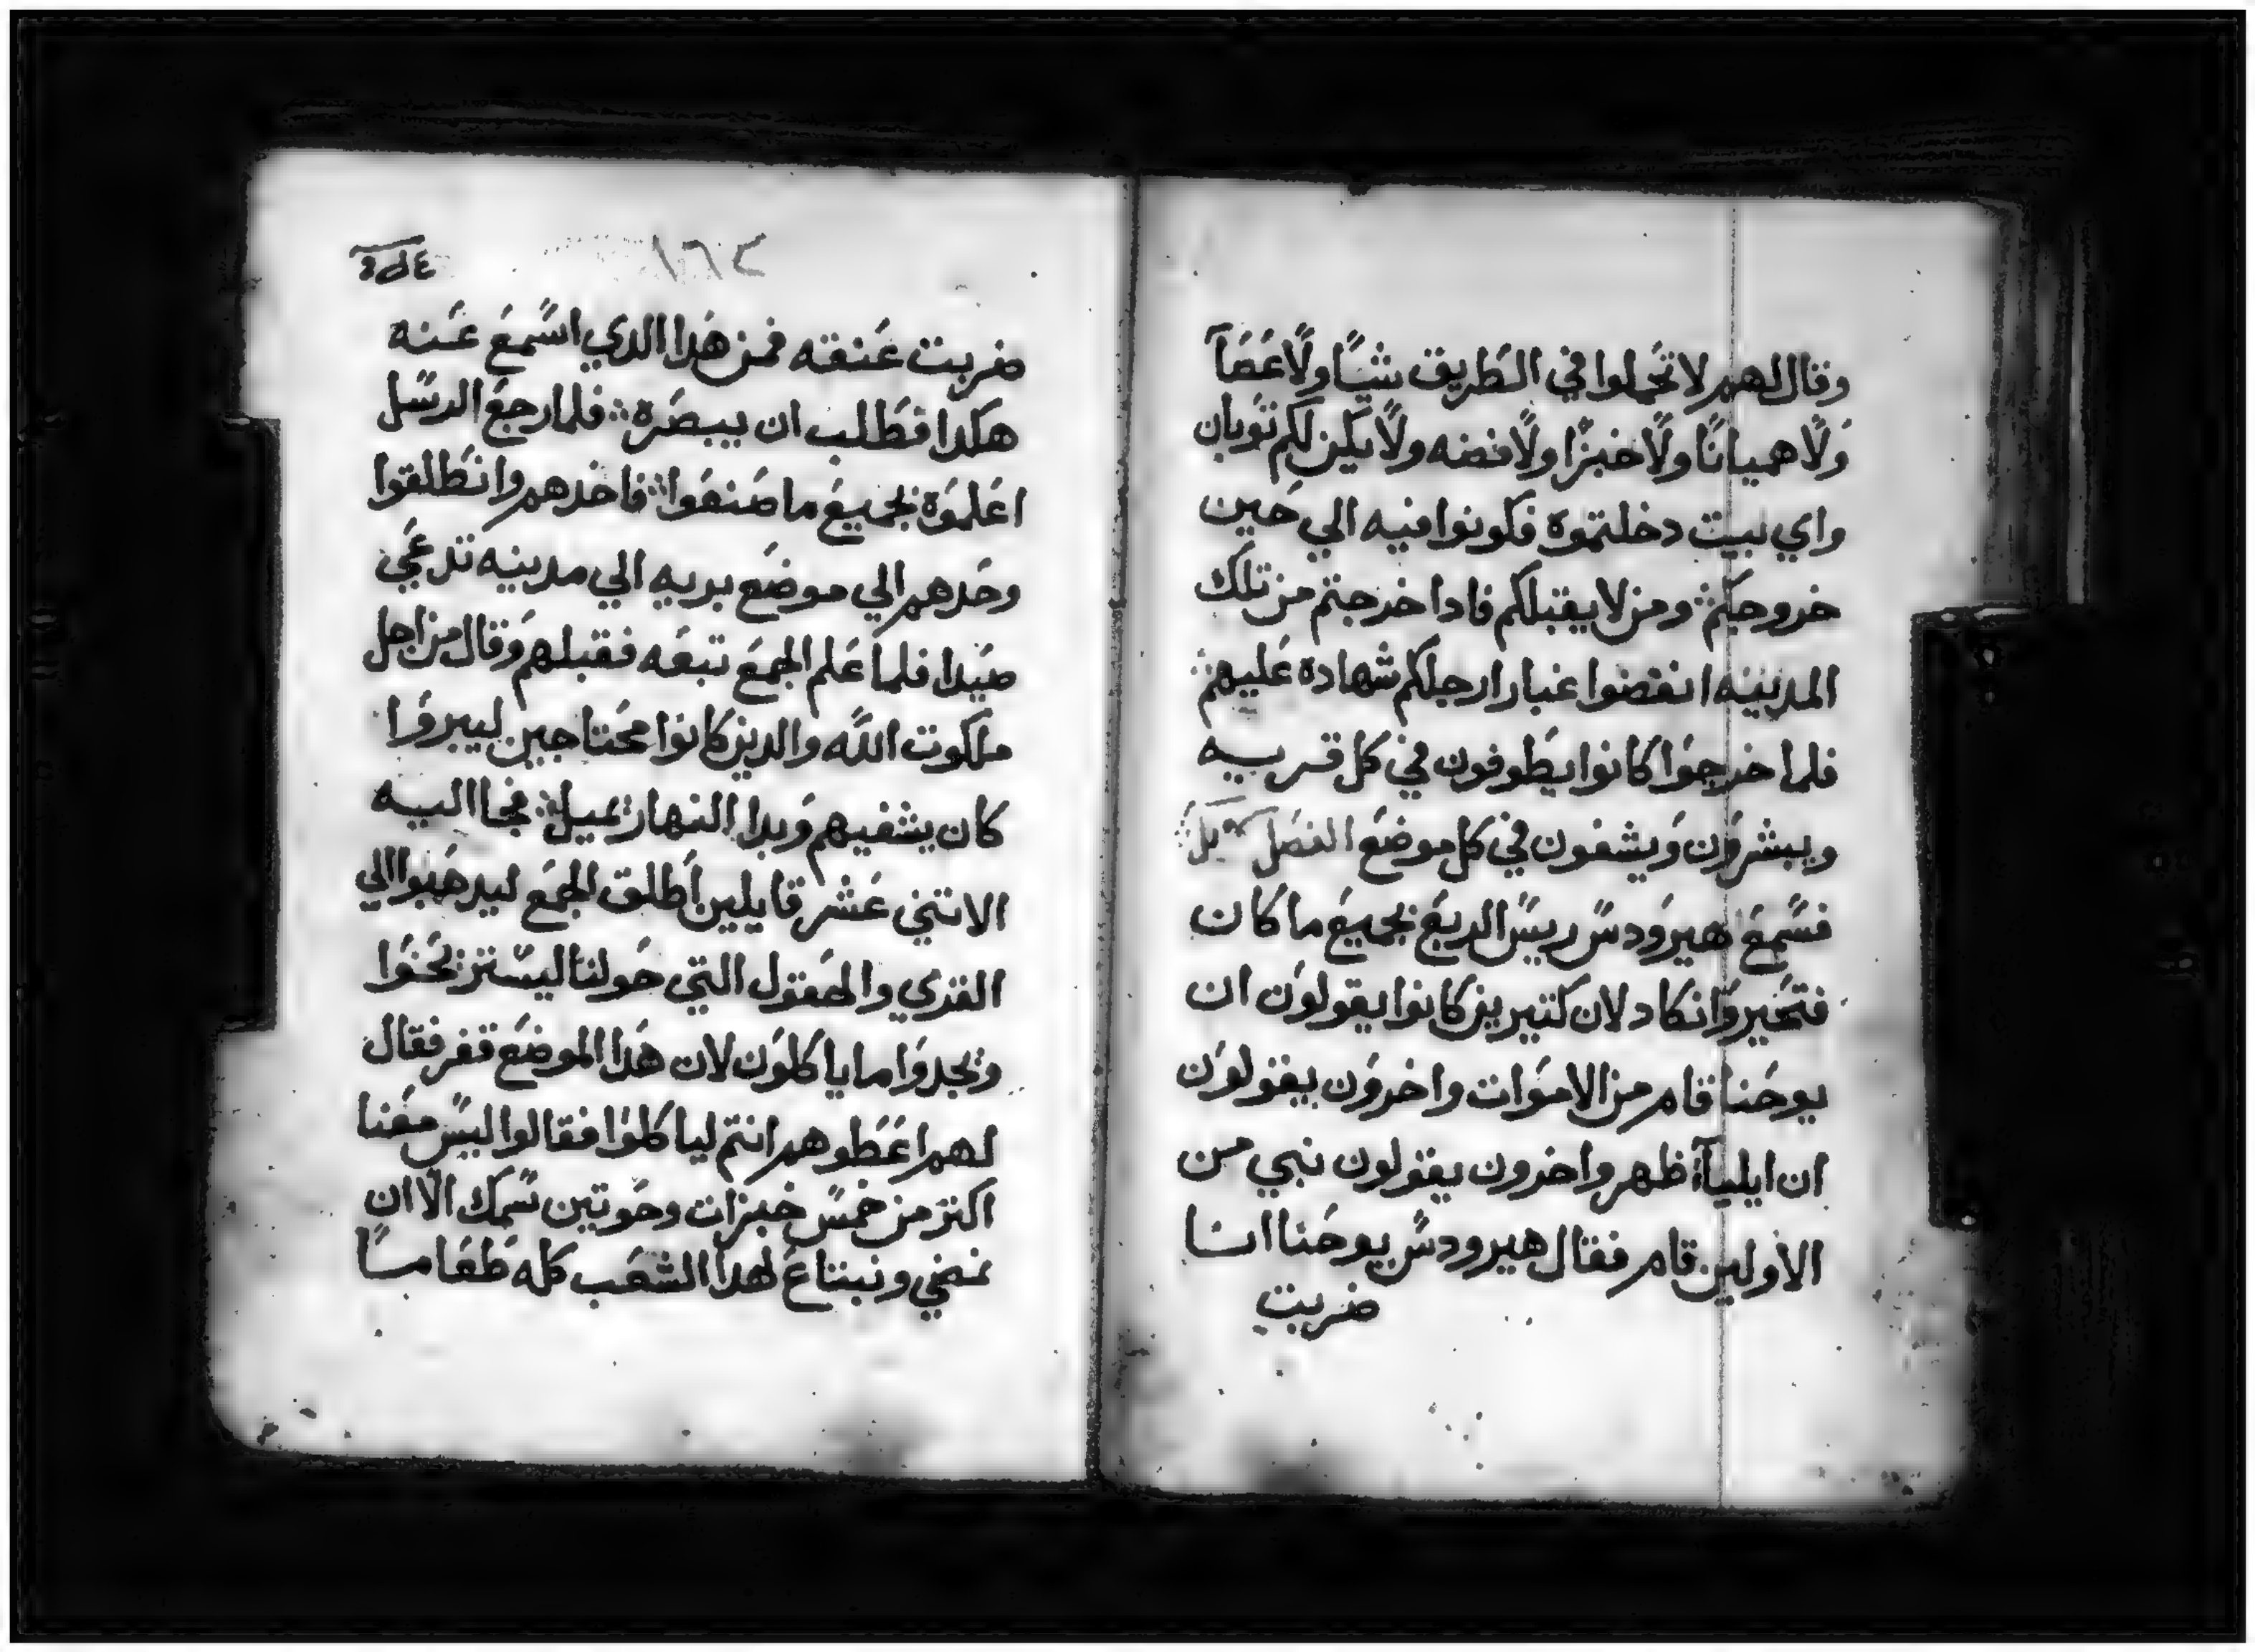 وقال لهم لا تحملوا في الطريق شيًا ولا عصآ
ولا هميانًا ولا خبزًا ولا فضه ولا يكن لكم توبان
واي بيت دخلتموه فكونوا فيه الي حين
خروجكم ومن لا يقبلكم فادا خرجتم من تلك
المدينه انفضوا غبار ارجلكم شهاده عليهم
فلما خرجوا كانوا يطوفون في كل قريه
ويبشرون ويشفون في كل موضع الفصل
فسمع هيرودس ريس الربع بجميع ما كان
فتحير وانكاد لان كتيرين كانوا يقولون ان
يوحنا قام من الاموات واخرون يقولون
ان ايليآ ظهر واخرون يقولون نبي من
الاولين قام فقال هيرودس يوحنا انا
ضربت
ضربت عنقه فمن هدا الدي اسمع عنه
هكدا فطلب ان يبصره فلما رجع الرسل
اعلموه بجميع ما صنعوا فاخدهم وانطلقوا
وحدهم الي موضع بريه الي مدينه تدعي
صيدا فلما علم الجمع تبعه فقبلهم وقال من اجل
ملكوت الله والدين كانوا محتاجين ليبروا
كان يشفيهم وبدا النهار يميل فجا اليه
الاتني عشر قايلين اطلق الجمع ليدهبوا الي
القري والحقول التي حولنا ليستريحوا
ويجدوا ما ياكلون لان هدا الموضع قفر فقال
لهم اعطوهم انتم لياكلوا فقالوا ليس معنا
اكتر من خمس خبزات وحوتين سمك الا ان
نمضي ونبتاع لهدا الشعب كله طعامًا